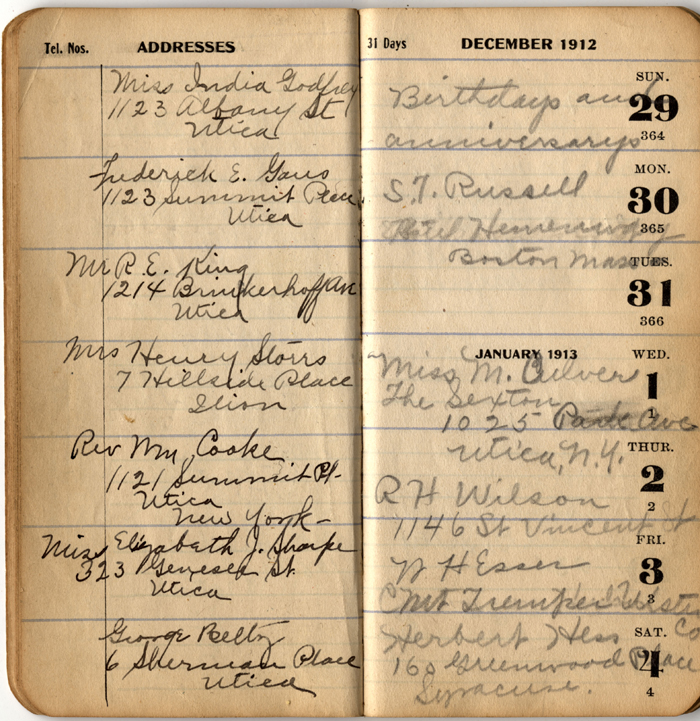 Tel. Nos. ADDRESSES
Miss India Godfrey
1123 Albany St
Utica
Frederick E. Gaus
1123 Summit Place
Utica
Mr R. E. King
1214 Brinkerhoff Av
Utica
Mrs Henry Storrs
7 Hillside Place
Ilion
Rev Wm. Cooke
1121 Summit Pl-
Utica
New York-
Miss Elizabeth J. Sharpe
323 Genesee St
Utica
George Beltz
6 Sherman Place
Utica
31 Days DECEMBER 1912
SUN.
Birthdays and 29
364
anniversarys
MON.
S. T. Russell 30
365
Hotel Hemenway
Boston Mass TUES.
31
366
JANUARY 1913 WED.
Miss M. Culver 1
The Sexton 1
1025 Park Ave
THUR.
Utica, N.Y. 2
R H Wilson 2
1146 St Vincent St
FRI.
W H Esser 3
3
Mt Tremper Ulster
Co
SAT.
Herbert Hess 4
160 Greenwood Place
Syracuse. 4